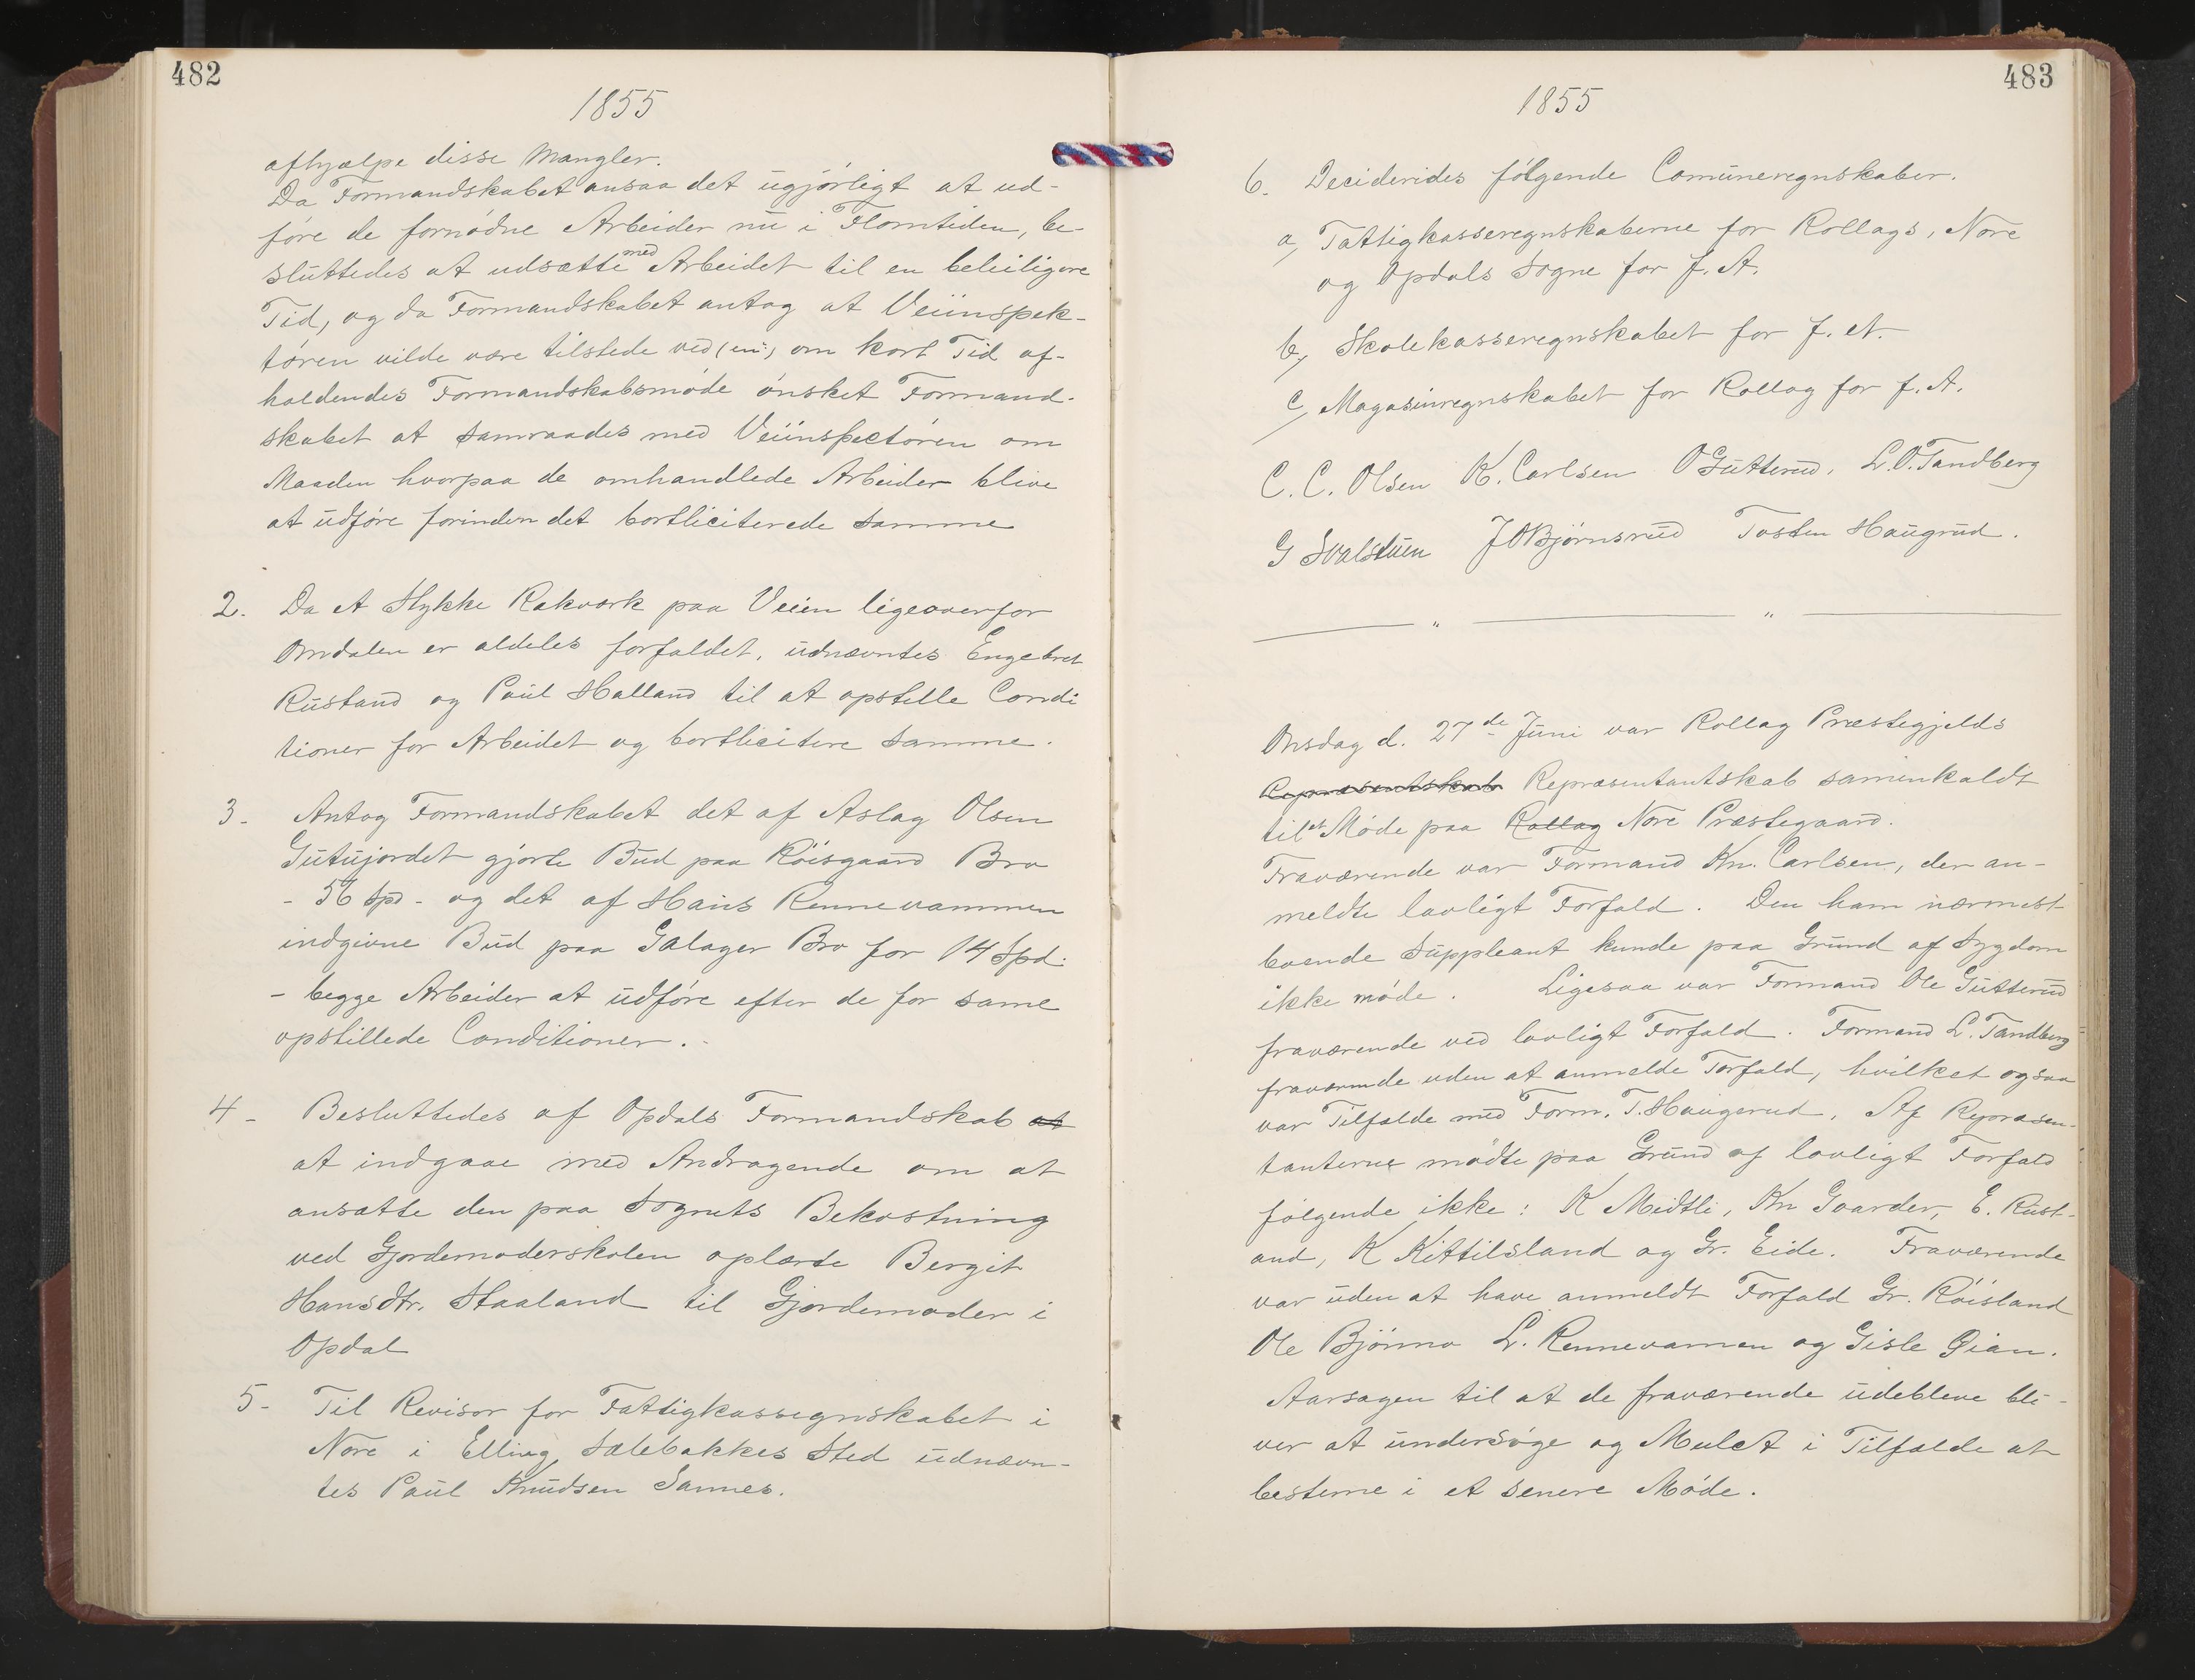 482
1855
afhjælpe disse Mangler.
Da Formandskabet ansaa det ugjørligt at ud-
føre de fornødne Arbeider nu i Flomtiden, be-
sluttedes at udsætte med Arbeidet til en beleiligere
Tid, og da Formandskabet antog at Veiinspek-
tøren vilde være tilstede ved (en:) om kort Tid af-
holdendes Formandskabsmøde ønsket Formand-
skabet at samraades med Veiinspectøren om
Maaden hvorpaa de omhandlede Arbeider blive
at udføre forinden det bortliciterede samme
2. Da et Stykke Rakværk paa Veien ligeoverfor
Omdalen er aldeles forfaldet, udnævntes Engebret
Rustand og Paul Halland til at opstille Condi
tioner for Arbeidet og bortlicitere samme.
3- Antog Formandskabet det af Aslag Olsen
Gutujordet gjorte Bud paa Röisgaard Bro
- 56 Spd - og det af Hans Rennevammen
indgivne Bud paa Galager Bro for 14 Spd:
- begge Arbeider at udføre efter de for same
opstillede Conditioner.-
4- Besluttedes af Opdals Formandskab at
at indgaae med Andragende om at
ansætte den paa Sognets Bekostning
ved Gjordemoderskolen oplærte Bergit
Hansdtr. Haaland til Gjordemoder i
Opdal
5- Til Revisor for Fattigkasseregnskabet i
Nore i Elling Sælebakkes Sted udnævn-
tes Paul Knudsen Sannes.
483
1855
6. Deciderides følgende Comuneregnskaber.
a, Fattigkasseregnskaberne for Rollags, Nore
og Opdals Sogne for f. A.
b, Skolekasseregnskabet for f. A.
c, Magasinregnskabet for Rollag for f. A.
C. C. Olsen K. Carlsen O Gutterud, L. O. Tandberg
G Svalstuen J O Bjørnsrud Tosten Haugrud.
Onsdag d. 27de Juni var Rollag Præstegjelds
Repræsentskab Repræsentantskab samenkaldt
til et Møde paa Rollag Nore Præstegaard.
Fraværende var Formand Kn. Carlsen, der an-
meldte lovligt Forfald. Den ham nærmest
boende Suppleant kunde paa Grund af Sygdom
ikke møde. Ligesaa var Formand Ole Gutterud
fraværende ved lovligt Forfald. Formand L. Tandberg
fraværende uden at anmelde Forfald, hvilket ogsaa
var Tilfælde med Form. T. Haugerud. Af Repræsen-
tanterne mødte paa Grund af lovligt Forfald
følgende ikke: K Midtli, Kn Gvarder, E. Rust-
and, K Kittilsland og Gr. Eide. Fraværende
var uden at have anmeldt Forfald Gr. Röisland
Ole Bjönno L. Rennevamen og Gisle Øian.
Aarsagen til at de fraværende udebleve bli-
ver at undersøge og Mulct i Tilfælde at
besteme i et senere Møde.